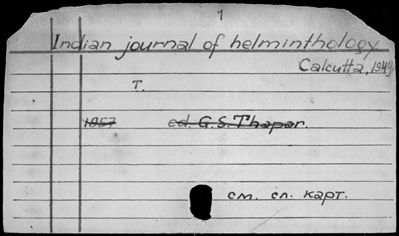 1
Indian journal of helminthology
Calcutta, 1949
T.
1957 ed. G.S. Thapar.
см. сл. карт.